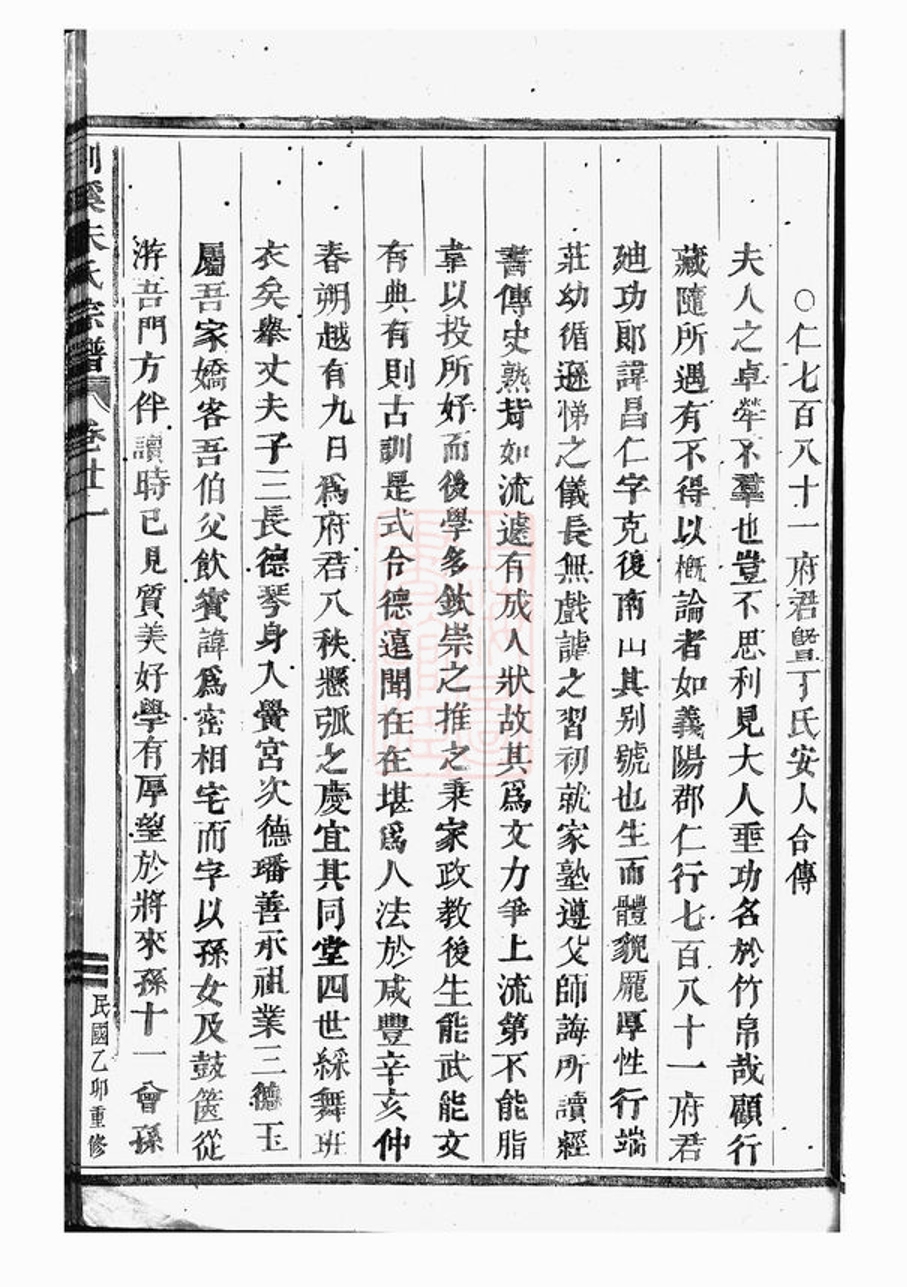 ○仁七百八十一府君暨丁氏安人合傳
夫人之卓犖不羣也豈不思利見大人垂功名於竹帛哉顧行
藏隨所遇有不得以槪論者如義陽郡仁行七百八十一府君
廸功郞諱昌仁字克復南山其別號也生而體貌龐厚性行端
莊幼循遜悌之儀長無戲謔之習初就家塾遵父師誨所讀經
書傳史熟背如流遽有成人狀故其爲文力爭上流第不能脂
韋以投所好而後學多欽崇之推之秉家政教後生能武能文
有典有則古訓是式合德遠聞在在堪爲人法於咸豐辛亥仲
春朔越有九日爲府君八秩懸弧之慶宜其同堂四世綵舞班
衣矣舉丈夫子三長德琴身入黌宮次德璠善承祖業三德玉
屬吾家嬌客吾伯父飲賓諱爲密相宅而字以孫女及鼓篋從
游吾門方伴讀時已見質美好學有厚望於將來孫十一曾孫
溪朱氏宗譜 卷廿一
民國乙卯重修